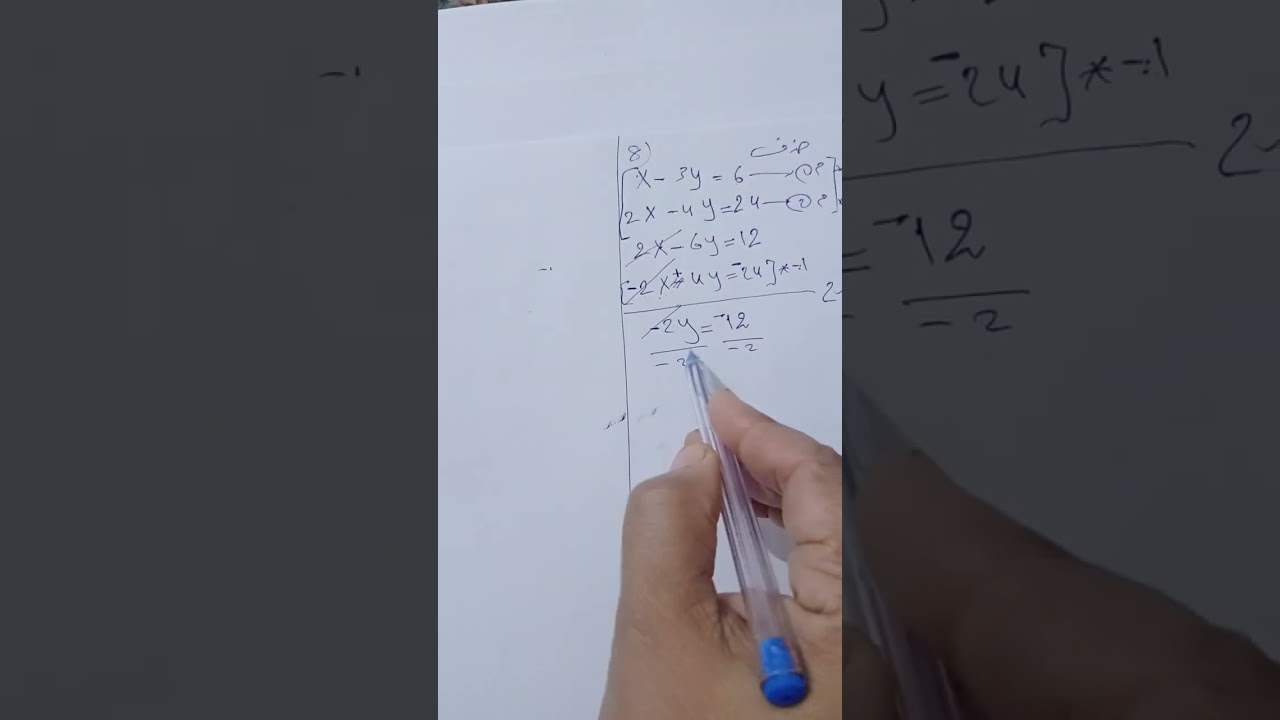 8) حذف
x - 3y = 6
2x - 4y = 24
2x - 6y = 12
-2x + 4y = -24] * -1
-2y = -12
-2 -2